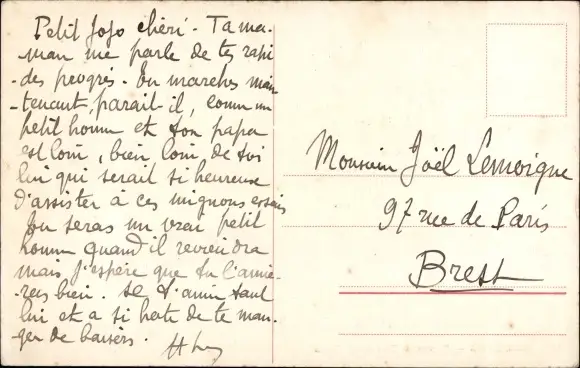 Petit Jojo chéri - Ta ma-
man me parle de tes rapi
-des progrès - Tu marches main
-tenant, paraît-il, comme un
petit homme et ton papa
est loin, bien loin de toi
lui qui serait si heureux
d'assister à ces mignons essais
Tu seras un vrai petit
homme quand il reviendra
mais j'espère que tu l'aime-
-ras bien. Il t'aime tant
lui et a si hâte de te man-
ger de baisers.
Monsieur Joël Lemoigne
97 rue de Paris
Brest